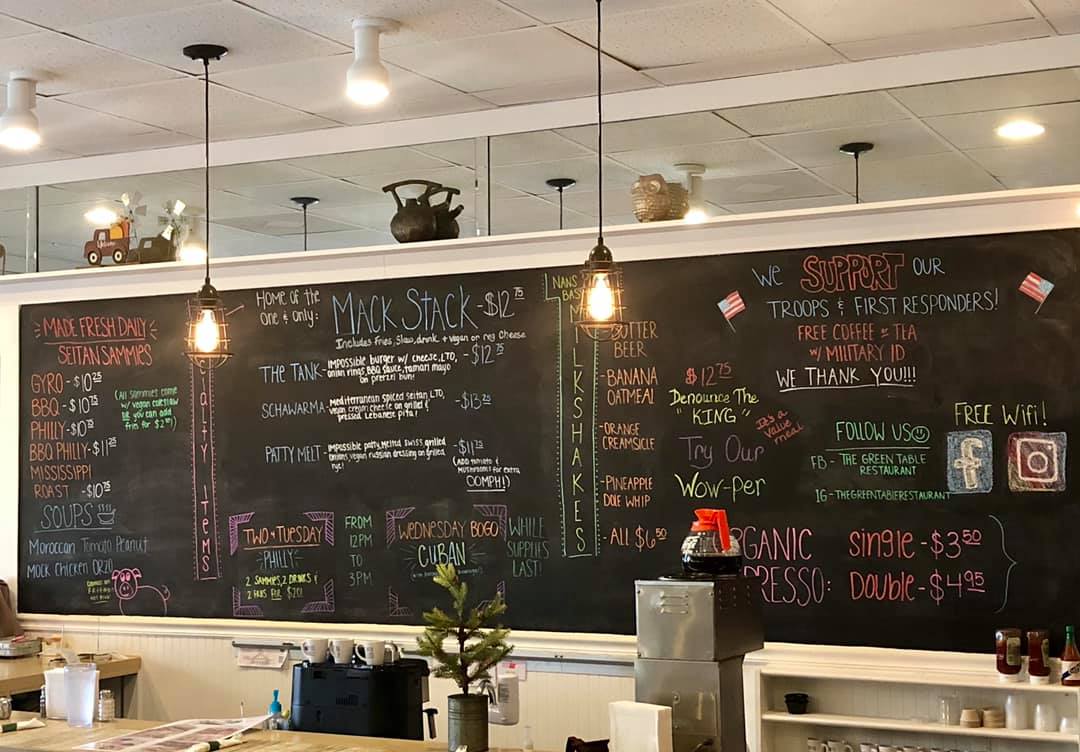 MADE FRESH DAILY
SEITAN SAMMIES
GYRO - $10.25
BBQ - $10.75
PHILLY - $10.75
BBQ PHILLY - $11.25
MISSISSIPPI
ROAST - $10.75
(All sammies come
w/ vegan coleslaw
but you can add
fries for $2!)
SOUPS
Moroccan Tomato Peanut
Mock Chicken Orzo
ITEMS
HOME OF the
One & Only:
MACK STACK - $12.75
Includes fries, slaw, drink + vegan or reg cheese
THE TANK - Impossible burger w/ cheese, LTO, - $12.75
onion rings, BBQ sauce, tamari mayo
on pretzel bun!
SCHAWARMA - Mediterranean spiced seitan LTO, - $13.25
vegan cream cheese on grilled &
pressed Lebanese pita!
PATTY MELT - Impossible patty, melted swiss, grilled - $11.75
onions, vegan russian dressing on grilled
rye!
(ADD tomato &
mushrooms for extra
OOMPH!)
TWO $ TUESDAY
PHILLY
2 SAMMIES, 2 DRINKS &
2 FRIES FOR $20!
FROM
12PM
TO
3PM
WEDNESDAY BOGO
CUBAN
WHILE
SUPPLIES
LAST!
NANS
MILKSHAKES
- BUTTER
BEER
- BANANA
OATMEAL
- ORANGE
CREAMSICLE
- PINEAPPLE
DOLE WHIP
- ALL $6.50
$12.75
Denounce The
"KING"
It's a
value
meal
Try Our
Wow-per
We SUPPORT OUR
TROOPS & FIRST RESPONDERS!
FREE COFFEE or TEA
w/ MILITARY ID
WE THANK YOU!!!
FREE Wifi!
FOLLOW US
FB - THE GREEN TABLE
RESTAURANT
IG - THEGREENTABLERESTAURANT
f
ORGANIC
ESPRESSO:
Single - $3.50
Double - $4.95